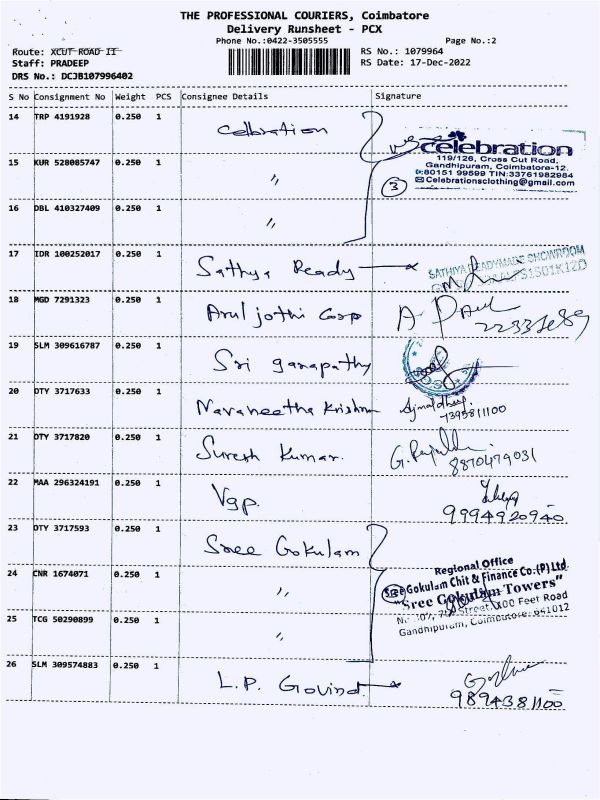 THE PROFESSIONAL COURIERS, Coimbatore
Delivery Runsheet - PCX
Phone No.:0422-3505555 Page No.:2
Route: XCUT ROAD II RS No.: 1079964
Staff: PRADEEP RS Date: 17-Dec-2022
DRS No.: DCJB107996402
S No Consignment No Weight PCS Consignee Details Signature
14 TRP 4191928 0.250 1 Celbration
celebration
119/126, Cross Cut Road,
Gandhipuram, Coimbatore-12.
80151 99599 TIN:33761982984
Celebrationsclothing@gmail.com
15 KUR 528085747 0.250 1 〃 3
16 DBL 410327409 0.250 1 〃
17 IDR 100252017 0.250 1 Sathya Ready
SATHIYA READYMADE SHOWROOM
18 MGD 7291323 0.250 1 Arul jothi Corp A Paul
19 SLM 309616787 0.250 1 Sri ganapathy
20 DTY 3717633 0.250 1 Navaneetha Krishnan
7395811100
21 DTY 3717820 0.250 1 Suresh Kumar.
8870479031
22 MAA 296324191 0.250 1 Vgp.
9994920940
23 DTY 3717593 0.250 1 Sree Gokulam
Regional Office
Sree Gokulam Chit & Finance Co.(P) Ltd
"Sree Gokulam Towers"
Street, 100 Feet Road
Gandhipuram, Coimbatore-641012
24 CNR 1674071 0.250 1 〃
25 TCG 50290899 0.250 1 〃
26 SLM 309574883 0.250 1 L.P. Govind
9894381100